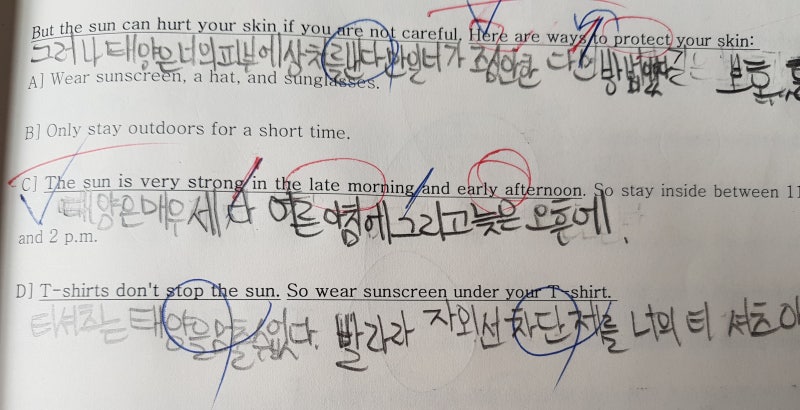 But the sun can hurt your skin if you are not careful. Here are ways to protect your skin:
그러나 태양은 너의 피부에 상처를 낸다 만일 너가 조심안한 다면 방법 보호
A] Wear sunscreen, a hat, and sunglasses.
B] Only stay outdoors for a short time.
C] The sun is very strong in the late morning and early afternoon. So stay inside between 11
태양은 매우 세다 이른 아침에 그리고 늦은 오후에.
and 2 p.m.
D] T-shirts don't stop the sun. So wear sunscreen under your T-shirt.
티셔츠는 태양을 멈출수없다. 발라라 자외선 차단제를 너의 티셔츠